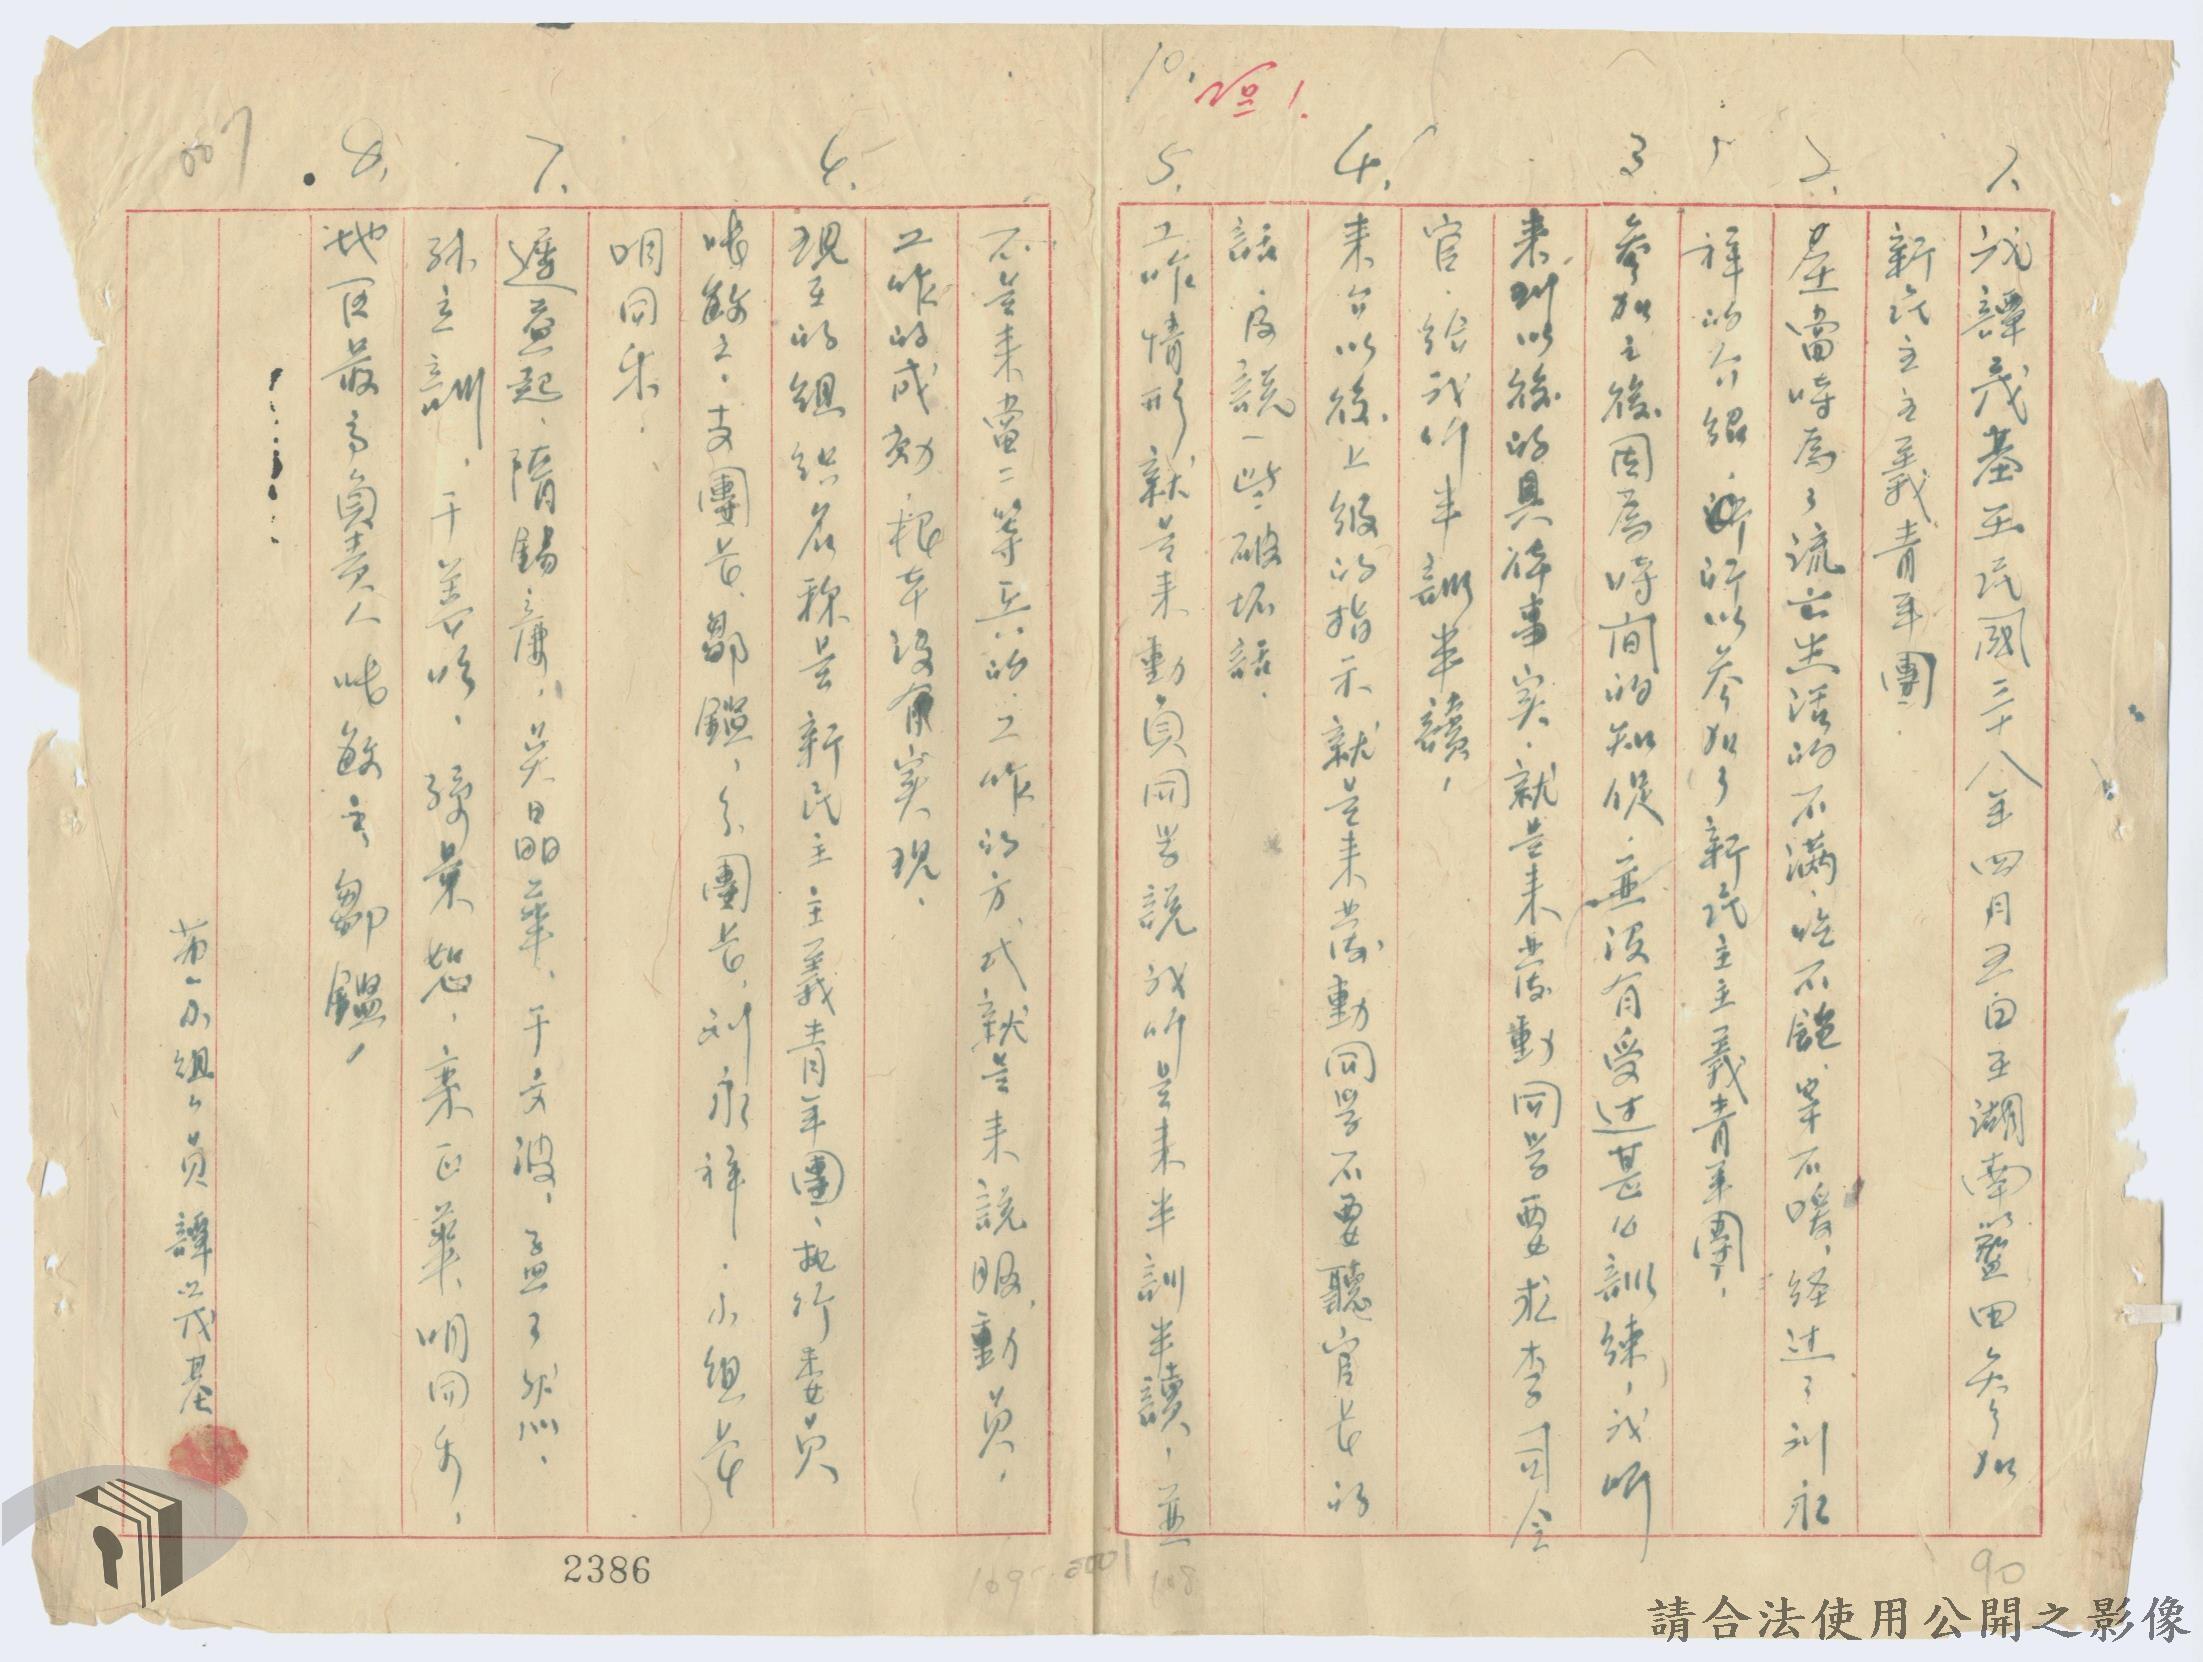 10.
1.
我譚茂基在民國三十八年四月五日在湖南藍田參加
新民主主義青年團.
2.
基當時為了流亡生活的不滿.吃不飽.穿不暖.經过了刘永
祥的介紹.所以参加了新民主主義青年團,
3
參加之後因為時间的短促.並沒有受过甚么訓練,我所
來到以後的具体事实.就是來鼓動同学要求李司令
官.給我们半訓半讀,
4.
來台以後上级的指示就是來鼓動同學不要聽官长的
話.及說一些破坏話.
5.
工作情形就是來動員同学說我们是來半訓半讀,並
不是來當二等兵的.工作的方式就是來說服動員,
工作的成効.根本沒有实現.
6.
現在的組织名称是新民主主義青年團.执行委員
之.支團长.鄒鑑,分團长.刘永祥.小组长
明同乐.
7.
遲益起.隋錫廉,吳晶華,于文波,孟了然.
孫立訓,于善欣,葉恕,棄正華,明同乐,
8.
地区最高負責人鄒鑑,
第一小组组員譚茂基
007
2386
1095-2001
108
90
請合法使用公開之影像